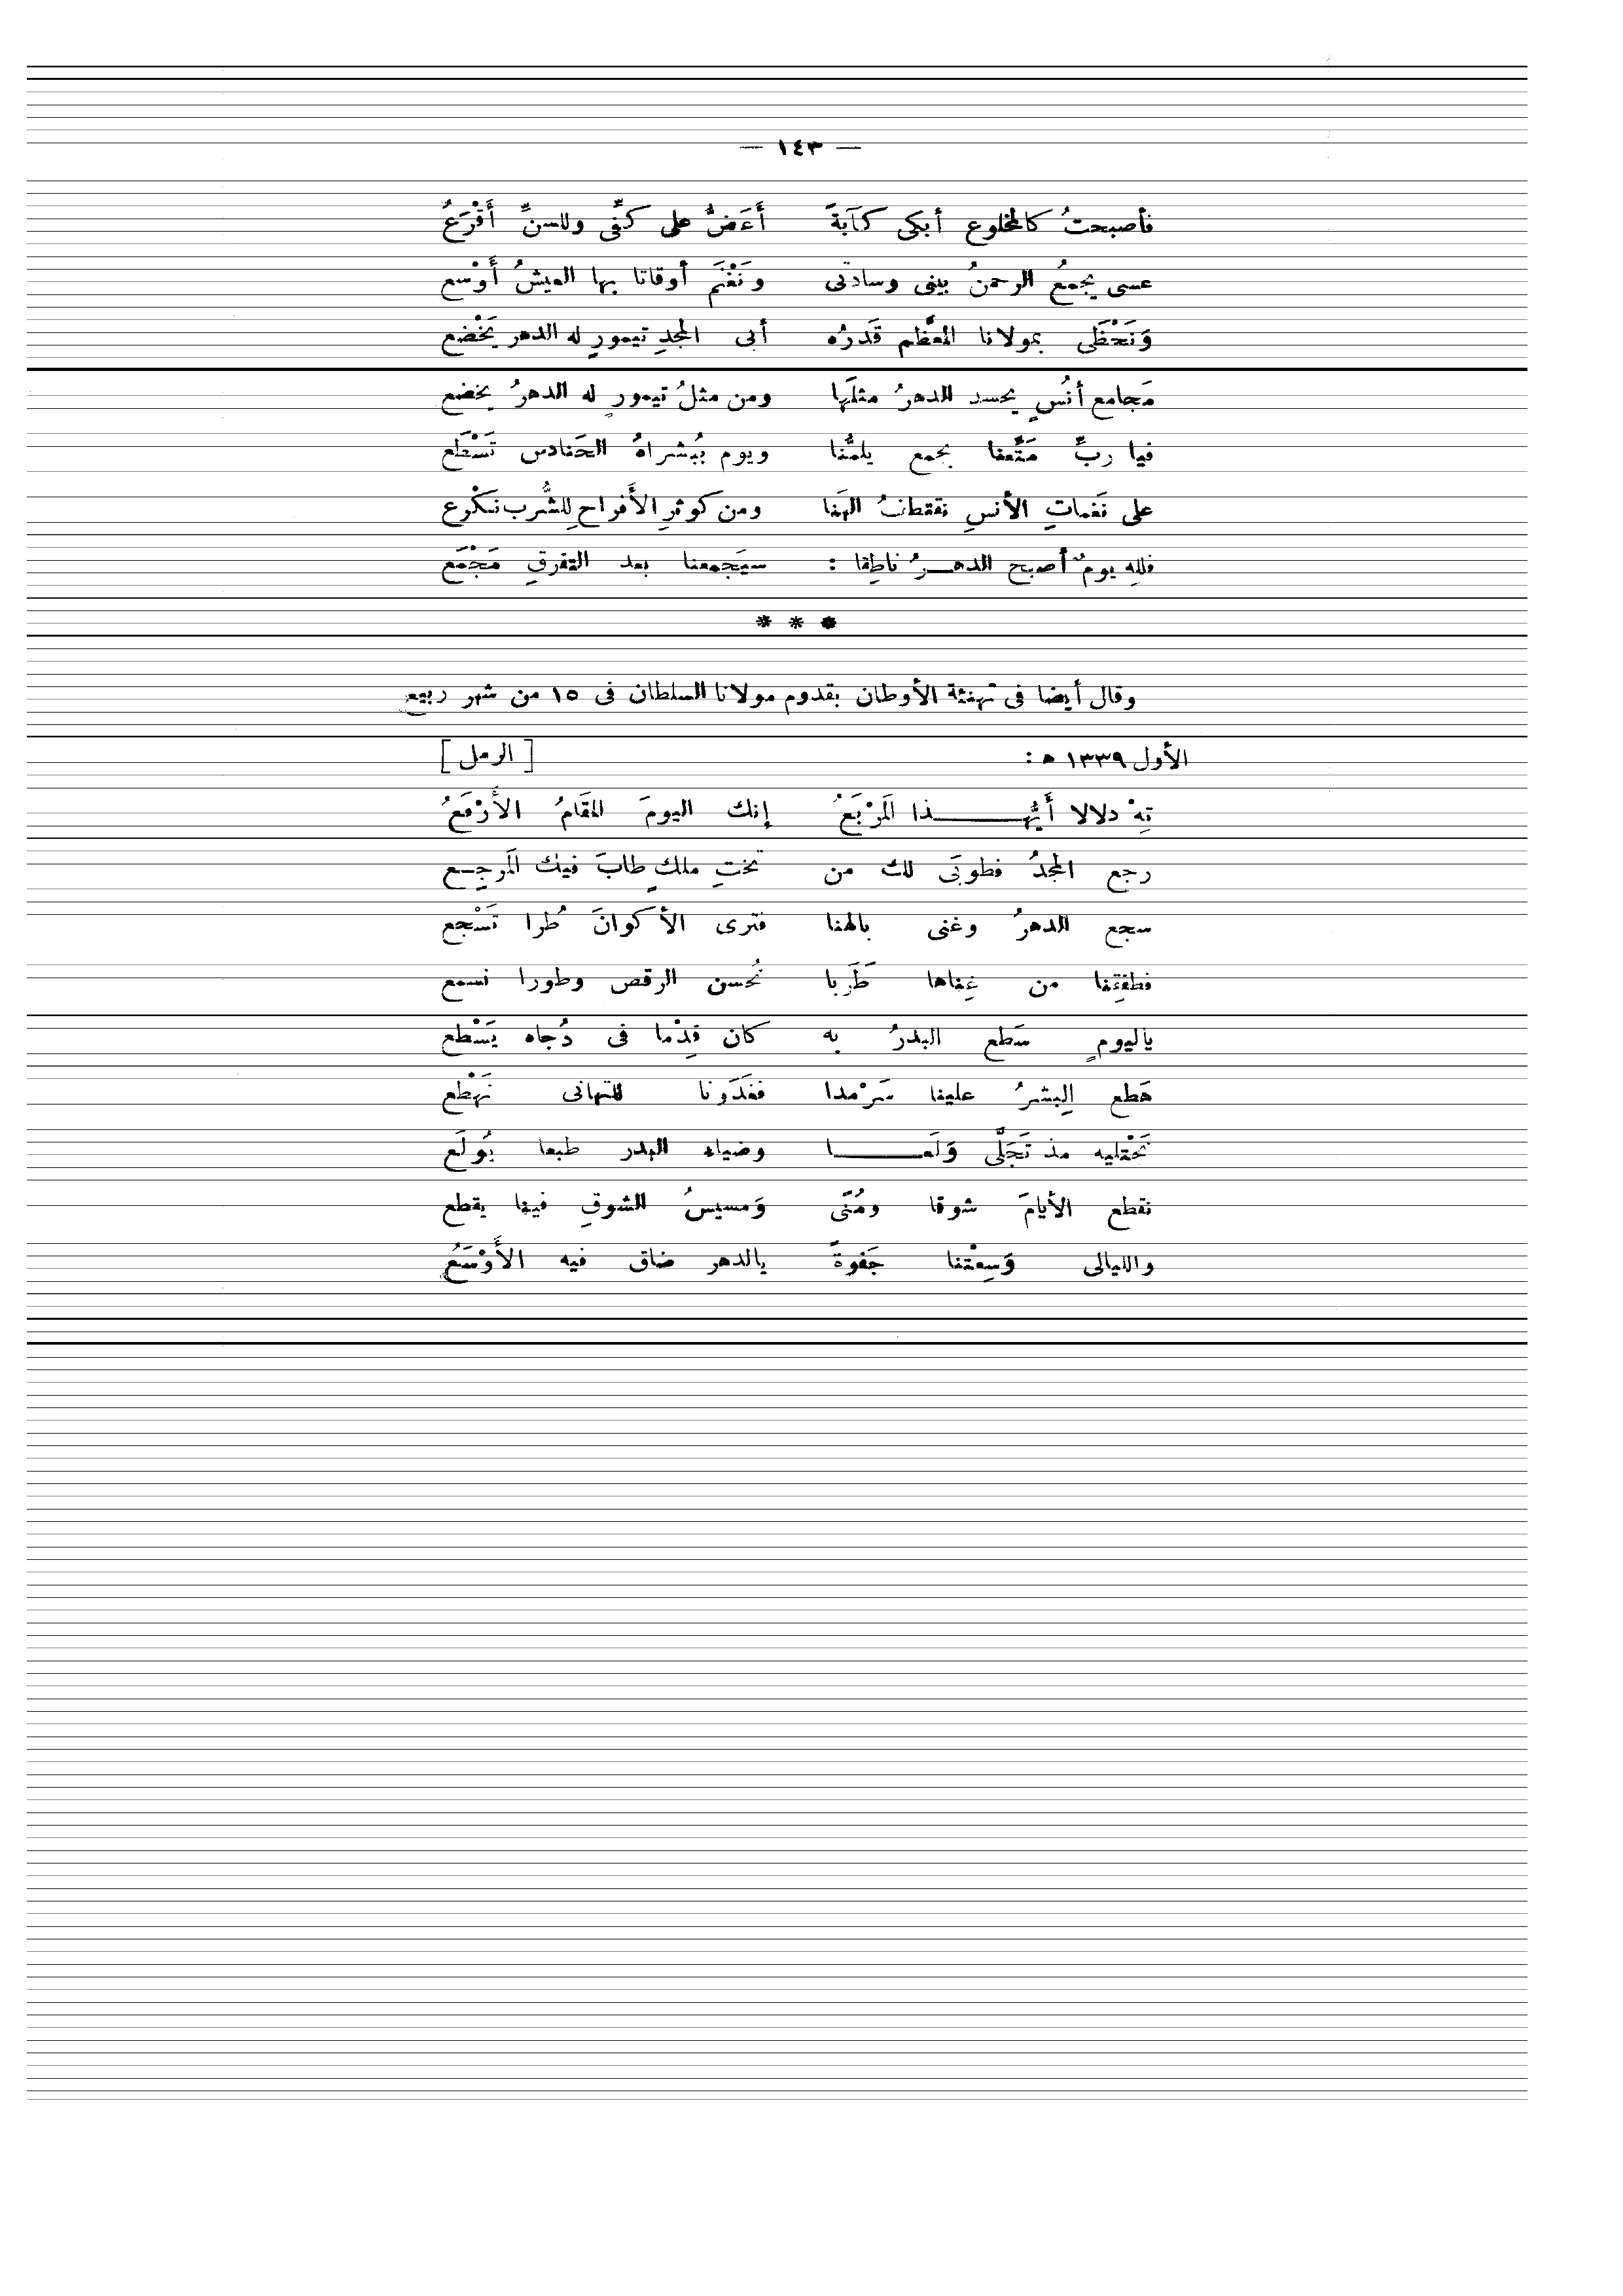 — ١٤٣ —
فأصبحتُ كالمخلوع أبكى كآبةً أَعَضُّ على كفِّى وللسنِّ أَقْرَعُ
عسى يجمعُ الرحمنُ بينى وسادتى ونَغْنَم أوقاتا بها العيشُ أَوْسع
وَنَحْظَى بمولانا المعظَّم قَدرُه أبى المجدِ تيمورٍ له الدهر يَخْضع
مَجامع أنُسٍ يحسد الدهرُ مثلَها ومن مثلُ تيمورٍ له الدهرُ يخضع
فيا ربِّ مَتِّعنا بجمع يلمُّنا ويوم بُبشراهُ الحَنادس تَسْطَع
على نَغماتِ الأنسِ نقتطفُ الهَنا ومن كوثرِ الأَفراح لِلشُّرب نكْرع
فللهِ يومٌ أصبح الدهـرُ ناطِقا : سيَجمعنا بعد التفرقِ مَجْمَع
* * *
وقال أيضا فى تهنئة الأوطان بقدوم مولانا السلطان فى ١٥ من شهر ربيع
الأول ١٣٣٩ ه : [ الرمل ]
تِهْ دلالا أَيُّهـــذا المَرْبَعُ إنك اليومَ المقَامُ الأَرْفَعُ
رجع المجدُ فطوبَى لك من تختِ ملكٍ طابَ فيك المَرجِـع
سجع الدهرُ وغنى بالهنا فترى الأكوانَ طُرا تَسْجع
فطفِقنا من غِناها طَرَبا نُحسن الرقص وطورا نسمع
يالَيومٍ سَطع البدرُ به كان قِدْما فى دُجاه يَسْطع
هَطع البِشرُ علينا سَرْمدا فغَدَونا للتهانى نَهْطع
نَجْتليه مذ تَجَلَّى وَلَعـــا وضياء البدر طبعا يُولَع
نقطع الأيامَ شوقا ومُنًى وَمسيسُ الشوقِ فينا يقطع
والليالى وَسِعْتنا جَفوةً يالدهر ضاق فيه الأَوْسَعُ